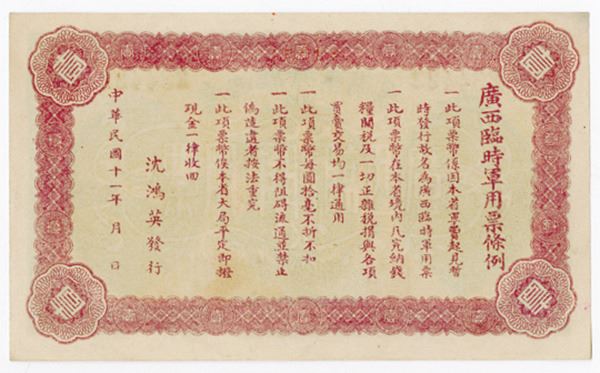 廣西臨時軍用票條例
一此項票幣係因本省軍費起見暫
時發行故名為廣西臨時軍用票
一此項票幣在本省境內凡完納錢
糧關稅及一切正雜稅捐與各項
買賣交易均一律通用
一此項票幣每圓拾毫不折不扣
一此項票幣不得阻碍流通並禁止
偽造違者按法重究
一此項票幣俟本省大局平定即撥
現金一律收回
沈鴻英發行
中華民國十一年 月 日